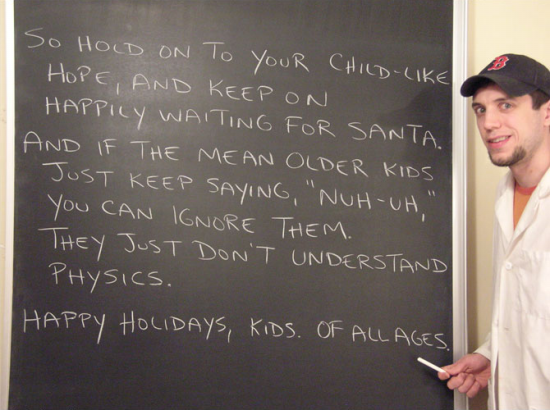 SO HOLD ON TO YOUR CHILD-LIKE
HOPE, AND KEEP ON
HAPPILY WAITING FOR SANTA.
AND IF THE MEAN OLDER KIDS
JUST KEEP SAYING, "NUH-UH,"
YOU CAN IGNORE THEM.
THEY JUST DON'T UNDERSTAND
PHYSICS.
HAPPY HOLIDAYS, KIDS. OF ALL AGES.
B